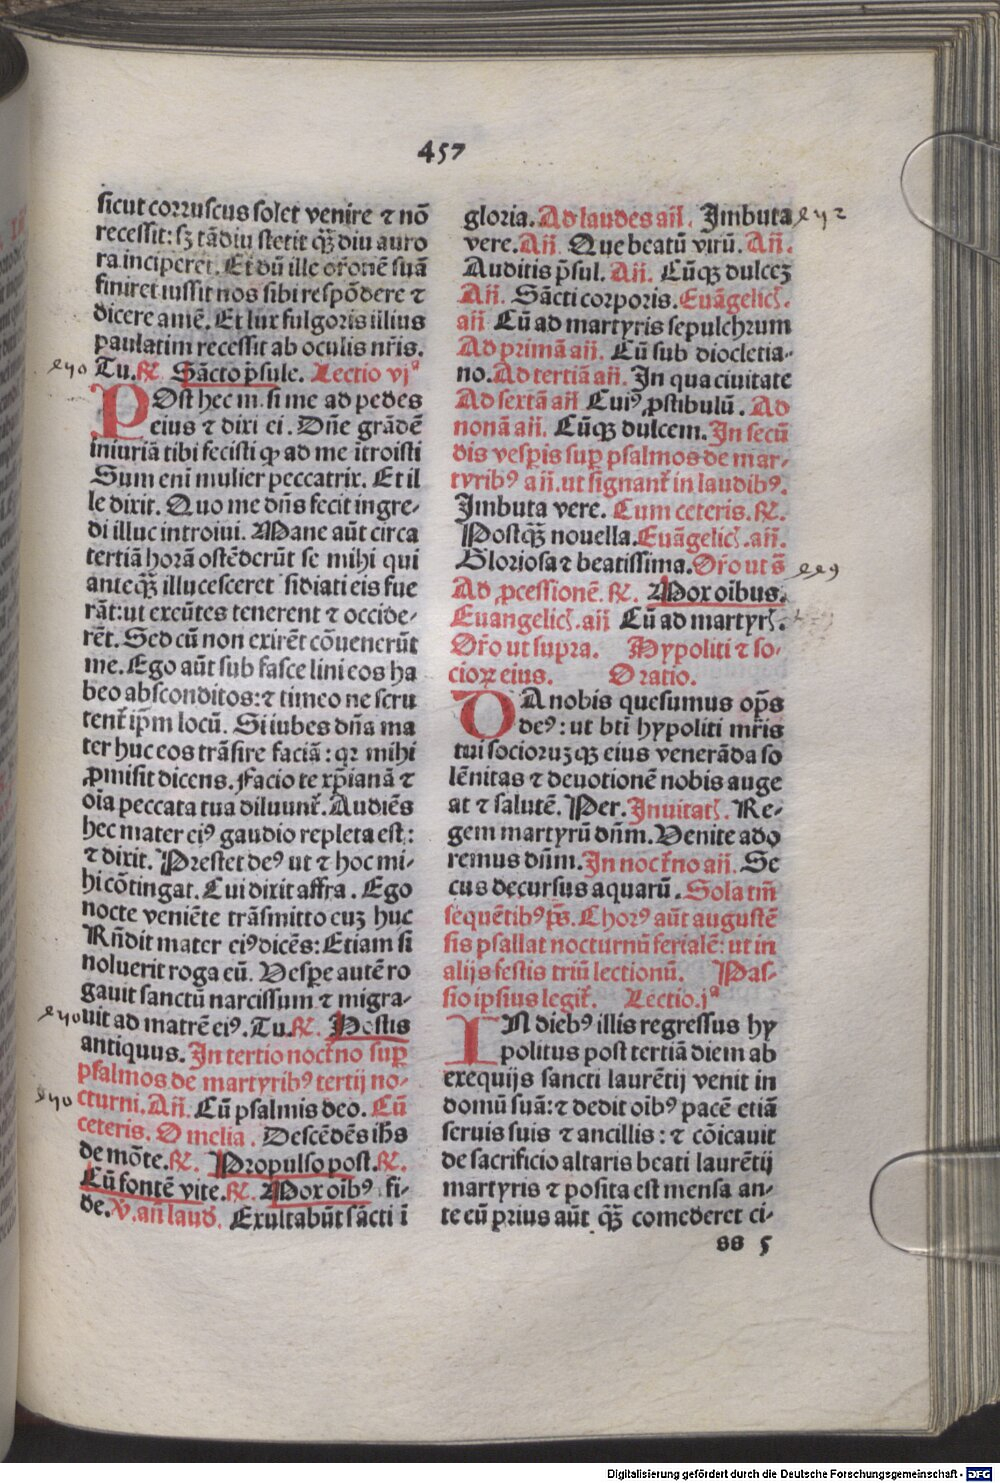 457
sicut corruscus solet venire ⁊ nō
recessit: sꝫ tādiu stetit qꝫ̄ diu auro
ra inciperet. Et dū ille or̄onē suā
finiret iussit nos sibi respōdere ⁊
dicere amē. Et lux fulgoris illius
paulatim recessit ab oculis nr̄is.
Tu. ℟. Sācto p̄sule. Lectio vjª
POst hec m̄ si me ad pedes
eius ⁊ dixi ei. Dn̄e grādē
iniuriā tibi fecisti ꝙ ad me ītroisti
Sum eni mulier peccatrix. Et il
le dixit. Quo me dn̄s fecit ingre⸗
di illuc introiui. Mane aūt circa
tertiā horā ostēderūt se mihi qui
anteqꝫ̄ illucesceret īsidiati eis fue
rāt: ut exeūtes tenerent ⁊ occide⸗
rēt. Sed cū non exirēt cōuenerūt
me. Ego aūt sub fasce lini eos ha
beo absconditos: ⁊ timeo ne scru
tent᷑ ip̄m locū. Si iubes dn̄a ma
ter huc eos trāsfire faciā: qꝛ mihi
ꝓmisit dicens. Facio te xp̄ianā ⁊
oīa peccata tua diluunt᷑. Audiēs
hec mater eiꝰ gaudio repleta est:
⁊ dixit. Prestet deꝰ ut ⁊ hoc mi⸗
hi cōtingat. Cui dixit affra. Ego
nocte veniēte trāsmitto euꝫ huc
Rn̄dit mater eiꝰ dicēs: Etiam si
noluerit roga eū. Vesꝑe autē ro
gauit sanctū narcissum ⁊ migra⸗
uit ad matrē eiꝰ. Tu. ℟. Hostis
antiquus. In tertio noct᷑no suꝑ
psalmos de martyribꝰ tertij no⸗
cturni. Añ. Cū psalmis deo. Cū
ceteris. Omelia. Descēdēs ihs
de mōte. ℟. Propulso post. ℟.
Cū fontē vite. ℟. Mox oībꝰ fi⸗
de. V. añ laud. Exultabūt sācti ī
gloria. Ad laudes añ. Imbuta
vere. Añ. Que beatū virū. Añ.
Auditis p̄sul. Añ. Cūqꝫ dulceꝫ
Añ. Sācti corporis. Euāgelic̄.
añ Cū ad martyris sepulchrum
Ad primā añ. Cū sub diocletia⸗
no. Ad tertiā añ. In qua ciuitate
Ad sextā añ Cuiꝰ ꝓstibulū. Ad
nonā añ. Cūqꝫ dulcem. In secū
dis vesꝑis suꝑ psalmos de mar⸗
tyribꝰ añ. ut signant᷑ in laudibꝰ.
Imbuta vere. Cum ceteris. ℟.
Postqꝫ̄ nouella. Euāgelic̄. añ.
Gloriosa ⁊ beatissima. Or̄o ut s̄
Ad ꝓcessionē. ℟. Mox oībus.
Euangelic̄. añ Cū ad martyr̄.
Or̄o ut supra. Hypoliti ⁊ so⸗
cioꝝ eius. Oratio.
DA nobis quesumus op̄s
deꝰ: ut bt̄i hypoliti mr̄is
tui sociorūqꝫ eius venerāda so
lēnitas ⁊ deuotionē nobis auge
at ⁊ salutē. Per. Inuitat̄. Re⸗
gem martyrū dn̄m. Venite ado
remus dn̄m. In noct᷑no añ. Se
cus decursus aquarū. Sola tm̄
sequētibꝰ ps̄. Chorꝰ aūt augustē
sis psallat nocturnū ferialē: ut in
alijs festis triū lectionū. Pas⸗
sio ipsius legit᷑. Lectio. jª
IN diebꝰ illis regressus hy
politus post tertiā diem ab
exequijs sancti laurētij venit in
domū suā: ⁊ dedit oībꝰ pacē etiā
seruis suis ⁊ ancillis: ⁊ cōicauit
de sacrificio altaris beati laurētij
martyris ⁊ posita est mensa an⸗
te eū prius aūt qꝫ̄ comederet ci⸗
88 5
Digitalisierung gefördert durch die Deutsche Forschungsgemeinschaft - DFG